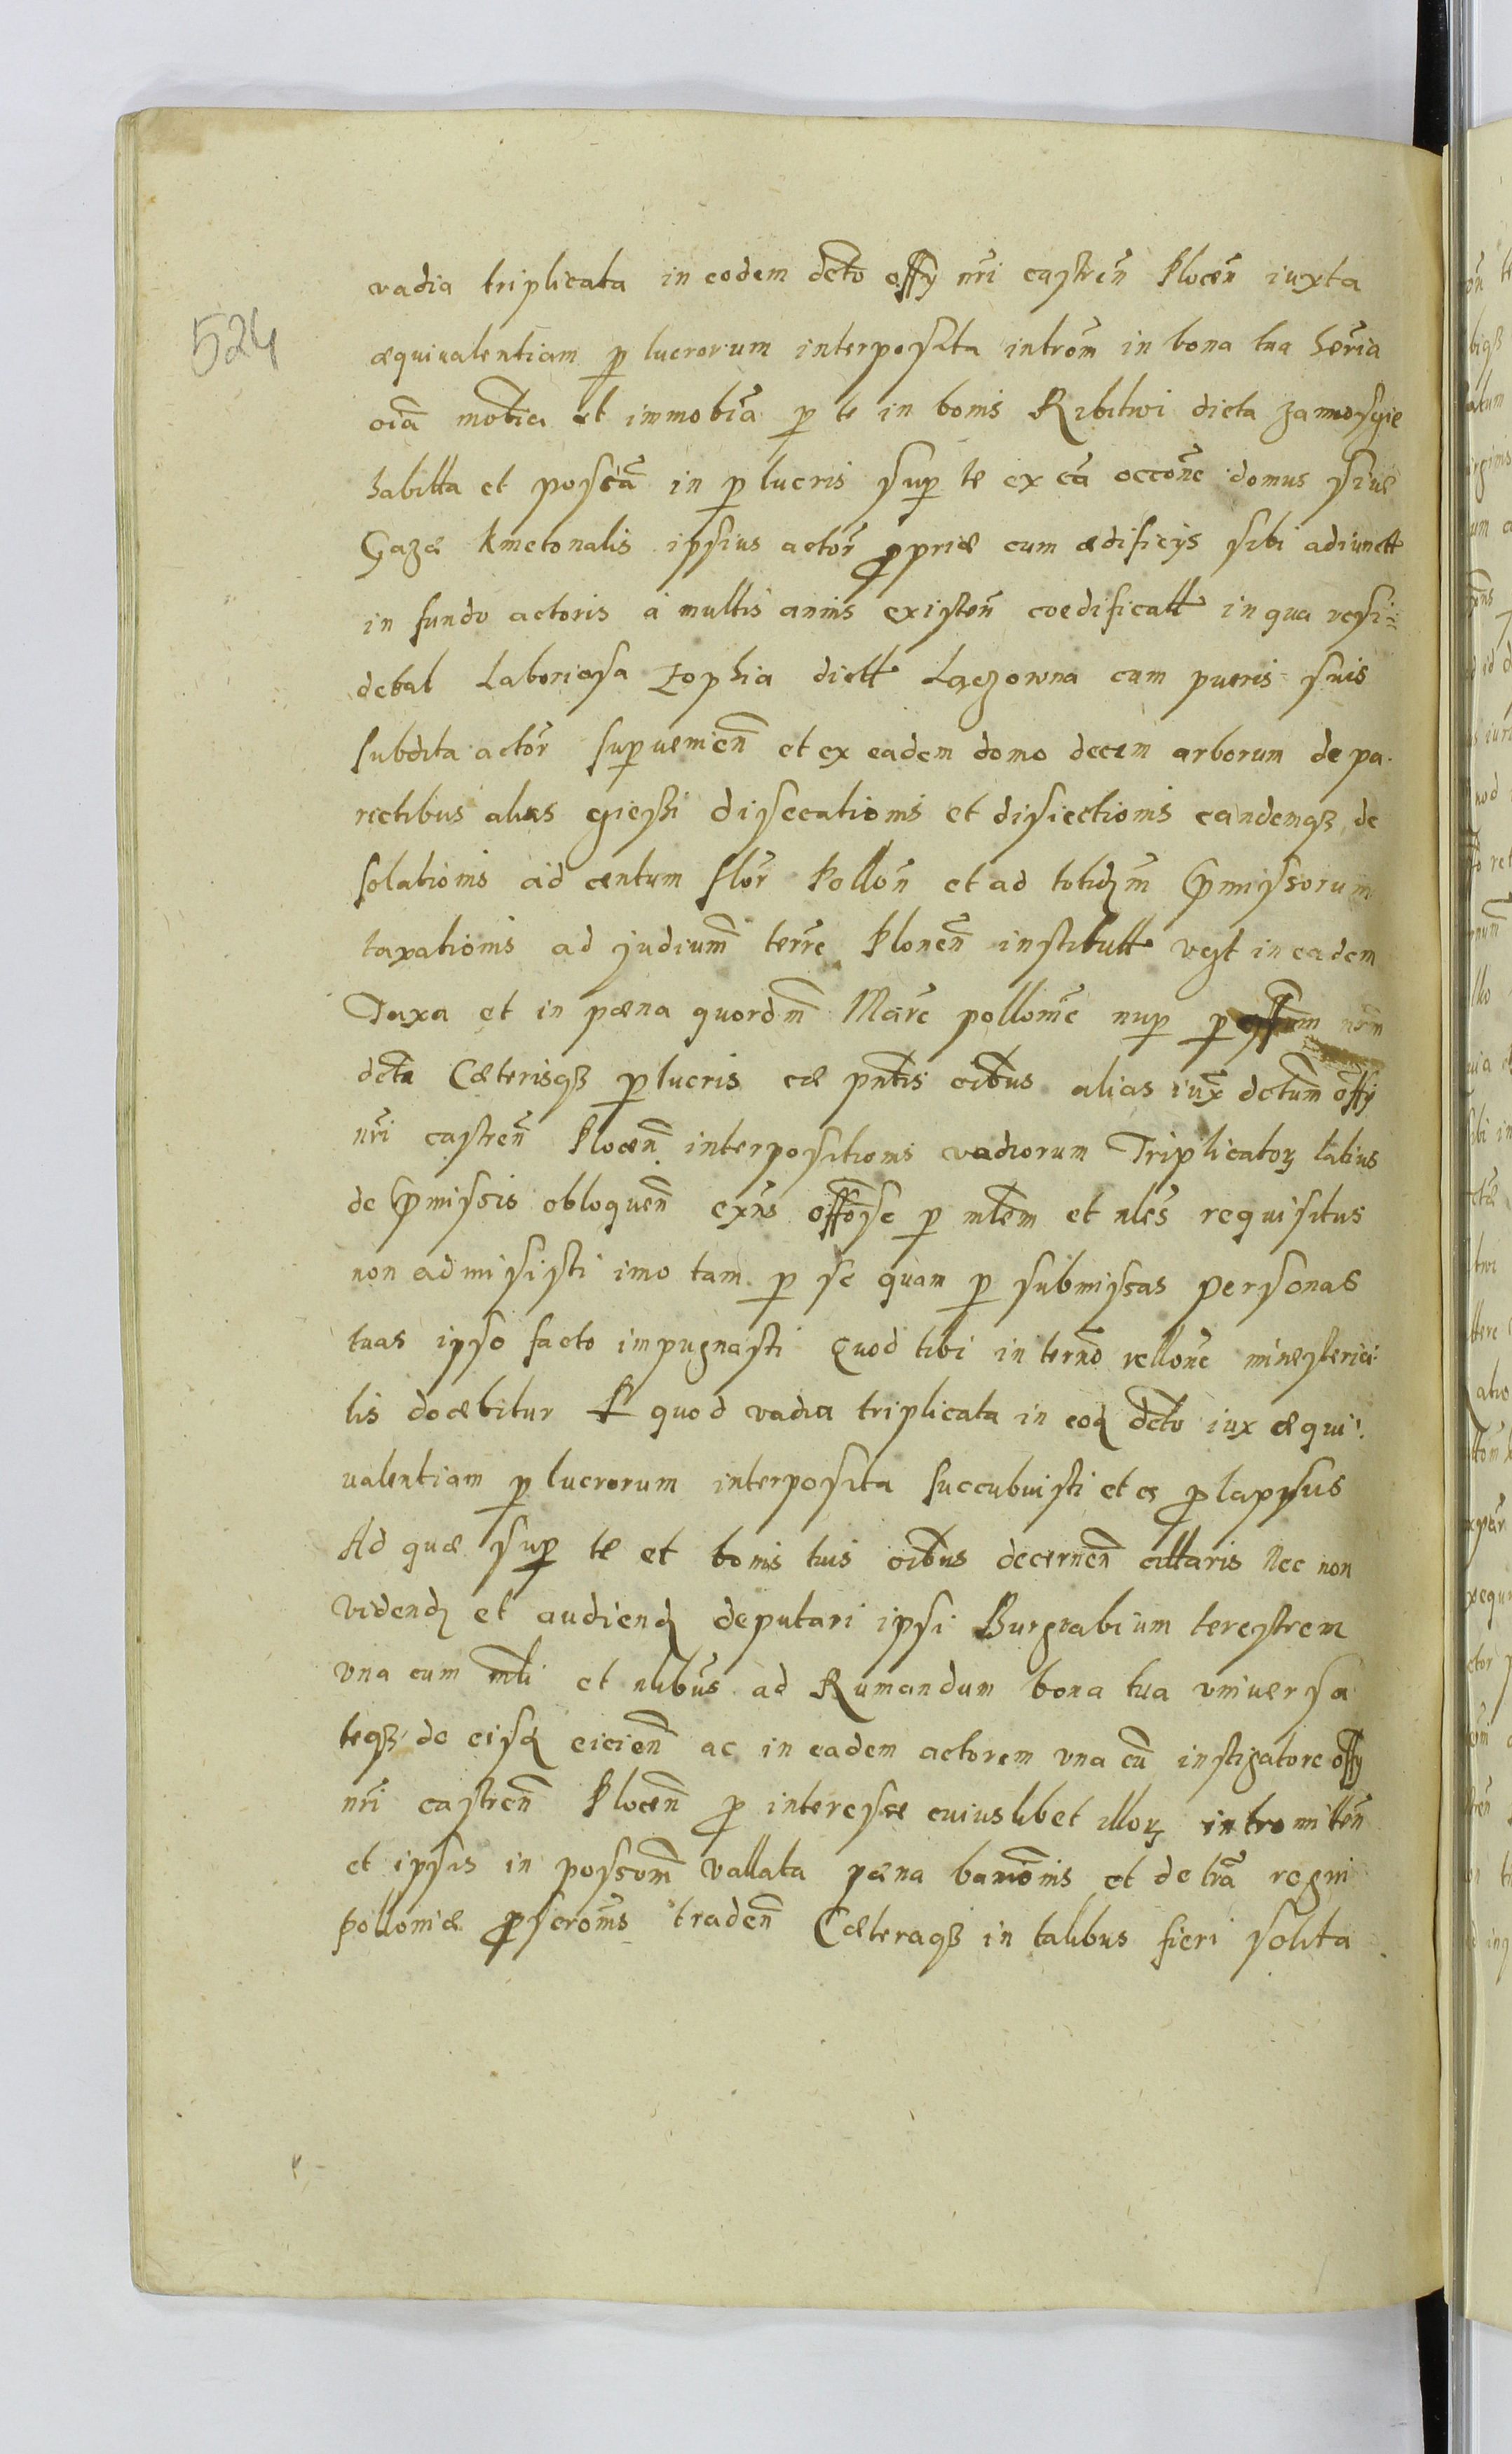 524
vadia triplicata in eodem dcto offy nri castren Plocen iuxta
æquivalentiam p lucrorum interposita introm in bona tua hæria
oia mobia et immobia p te in bonis Ribitwi dicta
habitta et possea in p lucris sup te ex ea occone domus siue
Gazæ kmetonalis ipsius actor propriæ cum ædificijs sibi adiunctt
in fundo actoris a multis annis existen coedificatt in qua resi=
debat Laboriosa Zophia dictt Lączowna cum pueris suis
subdita actor supuenien et ex eadem domo decem arborum de pa
rietibus alias disecationis et disiectionis eandemqз de
solationis ad centum flor Pollon et ad totidem pmissorum
taxationis ad judium terre Plonen institutt vezt in eadem
Taxa et in pæna quordm Marc pollonic nup p offium nrm
dcta Cæterisqз p lucris eæ pntis oibus alias iux dctum offy
nri castren Plocen interpositionis vadiorum Triplicatoꝝ latius
de pmissis obloquen exns offose p mlem et nles requisitus
non admisisti imo tam p se quam p submissas personas
tuas ipso facto impugnasti Quod tibi in termo rellone ministeria
lis docæbitur Et quod vadia triplicata in eod dcto iux æqui
valentiam p lucrorum interposita succubuisti et es prolapsus
Ad quæ sup te et bonis tuis oibus decernen cittaris Nec non
videnđ et audienđ deputari ipsi Burgrabium terestrem
vna cum mli et nlibus ad Rumandum bona tua vniuersa
teqз de eisđ eicien ac in eadem actorem vna cu instigatore offy
nri castren Plocen pro interesse cuiuslibet illoꝝ intromitten
et ipsis in possom vallata pæna banionis et de tra regni
polloniæ proscronis traden Cæteraqз in talibus fieri solita